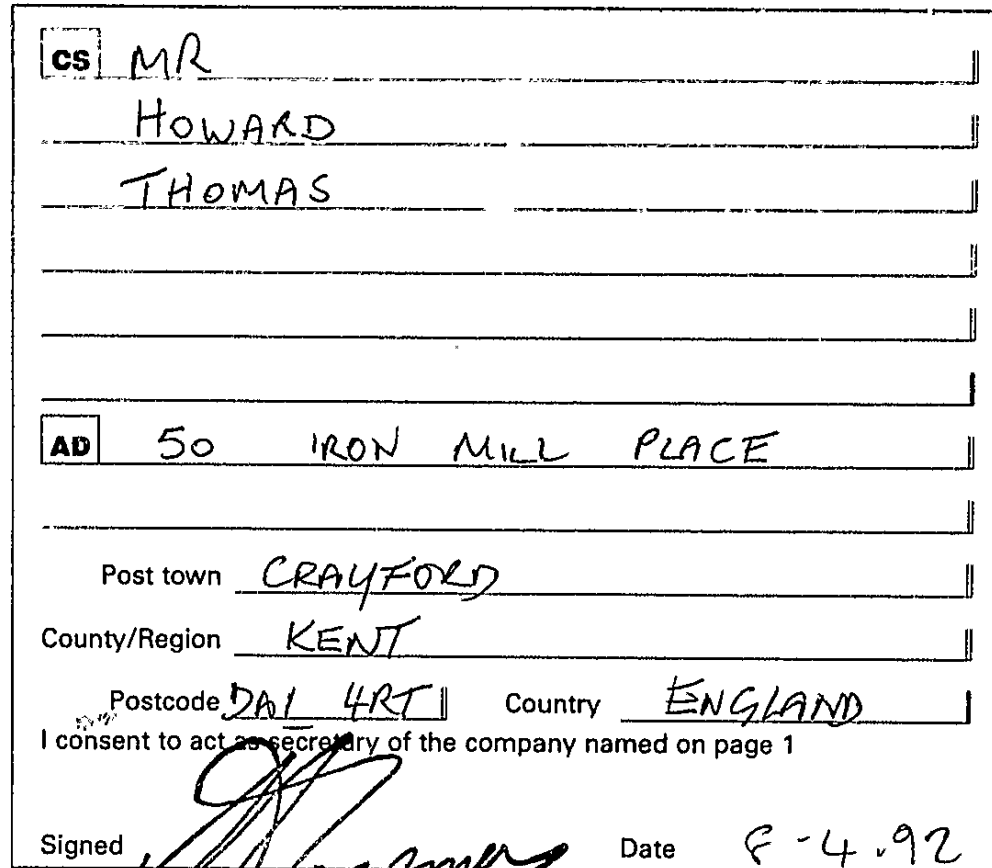 CS MR
HOWARD
THOMAS
AD 50 IRON MILL PLACE
Post town CRAYFORD
County/Region KENT
Postcode DA1 4RT Country ENGLAND
I consent to act as secretary of the company named on page 1
Signed Date 8-4.92